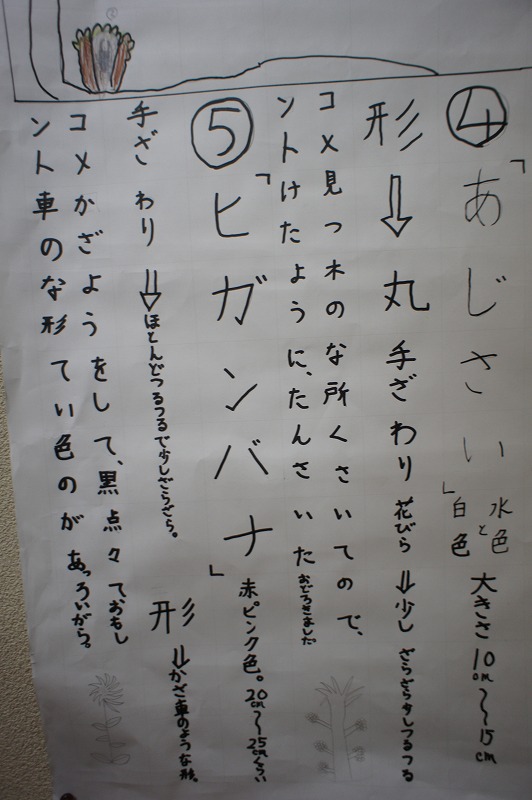 ②
④「あじさい」水色と白色 大きさ10cm〜15cm
形⇩丸 手ざわり 花びら⇩少しざらざら少しつるつる
コメ見つ木のな所くさいてので、
ントけたように、たんさいたおどろきました
⑤「ヒガンバナ」赤ピンク色。20cm〜25cmくらい
手ざわり⇩ほとんどつるつるで少しざらざら。形⇩かざ車のような形。
コメかざようをして、黒点々ておもし
ント車のな形てい色のがあっろいがら。